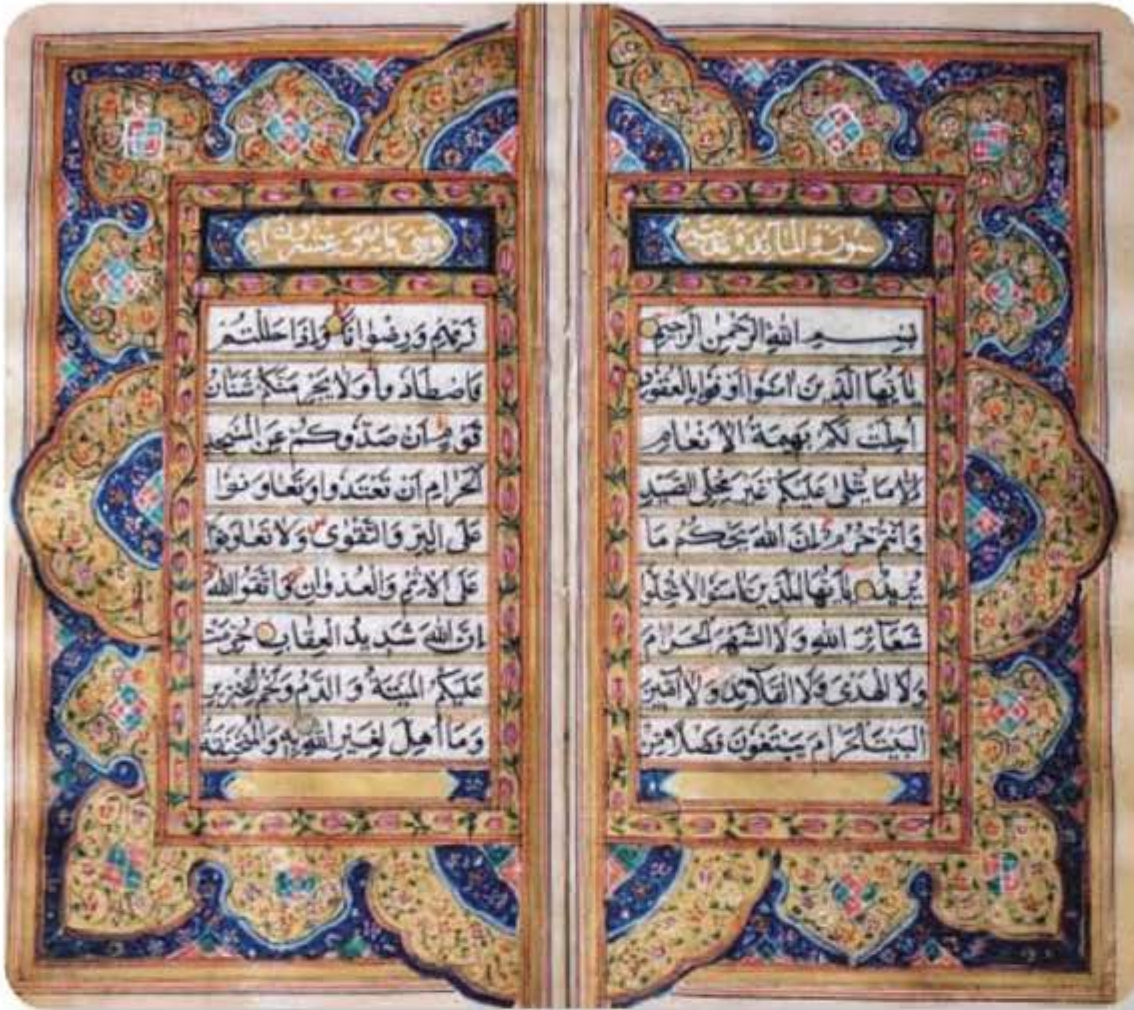 سورة المائدة مدنية
بِسْمِ اللهِ الرَّحْمٰنِ الرَّحِيْمِ
يَا أَيُّهَا الَّذِيْنَ اٰمَنُوْا اَوْفُوْا بِالْعُقُوْدِ
اُحِلَّتْ لَكُمْ بَهِيْمَةُ الْاَنْعَامِ
اِلَّا مَا يُتْلٰى عَلَيْكُمْ غَيْرَ مُحِلِّي الصَّيْدِ
وَاَنْتُمْ حُرُمٌ اِنَّ اللهَ يَحْكُمُ مَا
يُرِيْدُ يَا اَيُّهَا الَّذِيْنَ اٰمَنُوْا لَا تُحِلُّوْا
شَعَآئِرَ اللهِ وَلَا الشَّهْرَ الْحَرَامَ
وَلَا الْهَدْيَ وَلَا الْقَلَآئِدَ وَلَا آمِّيْنَ
الْبَيْتَ الْحَرَامَ يَبْتَغُوْنَ فَضْلًا مِنْ
وهي مائة و عشرون
رَبِّهِمْ وَرِضْوَانًا وَاِذَا حَلَلْتُمْ
فَاصْطَادُوْا وَلَا يَجْرِمَنَّكُمْ شَنَاٰنُ
قَوْمٍ اَنْ صَدُّوْكُمْ عَنِ الْمَسْجِدِ
الْحَرَامِ اَنْ تَعْتَدُوْا وَتَعَاوَنُوْا
عَلَى الْبِرِّ وَالتَّقْوٰى وَلَا تَعَاوَنُوْا
عَلَى الْاِثْمِ وَالْعُدْوَانِ وَاتَّقُوا اللهَ
اِنَّ اللهَ شَدِيْدُ الْعِقَابِ حُرِّمَتْ
عَلَيْكُمُ الْمَيْتَةُ وَالدَّمُ وَلَحْمُ الْخِنْزِيْرِ
وَمَا اُهِلَّ لِغَيْرِ اللهِ بِهِ وَالْمُنْخَنِقَةُ